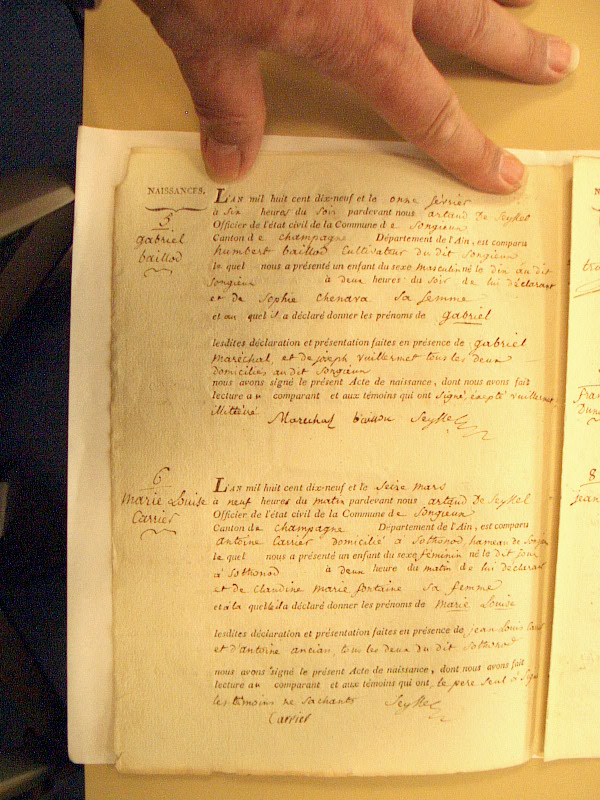 NAISSANCES.
5
gabriel
baillod
L'AN mil huit cent dix-neuf et le onze février
à six heures du soir pardevant nous artaud De Seyssel
Officier de l'état civil de la Commune de Songieux
Canton de champagne Département de l'Ain, est comparu
humbert baillod Cultivateur du dit Songieux
le quel nous a présenté un enfant du sexe masculin né le dix au dit
Songieux à deux heures du soir de lui déclarant
et de Sophie Chendra sa femme
et au quel il a déclaré donner les prénoms de gabriel
lesdites déclaration et présentation faites en présence de gabriel
maréchal, et de joseph vuillermet tous les deux
domiciliés au dit Songieux
nous avons signé le présent Acte de naissance, dont nous avons fait
lecture au comparant et aux témoins qui ont signé, excepté vuillermet
illittéré
Marechal baillod Seyssel
6
Marie Louise
Carrier
L'AN mil huit cent dix-neuf et le seize mars
à neuf heures du matin pardevant nous artaud De Seyssel
Officier de l'état civil de la Commune de Songieux
Canton de champagne Département de l'Ain, est comparu
antoine Carrier domicilié à Sothonod, hameau de
le quel nous a présenté un enfant du sexe féminin né le dit jour
à Sothonod à deux heure du matin de lui déclarant
et de Claudine Marie fontaine sa femme
et à la quelle il a déclaré donner les prénoms de Marie Louise
lesdites déclaration et présentation faites en présence de jean Louis
et d'antoine ancian, tous les deux du dit Sothonod
nous avons signé le présent Acte de naissance, dont nous avons fait
lecture au comparant et aux témoins qui ont, le pere seul a signé
les témoins ne sachants Seyssel
Carrier
8